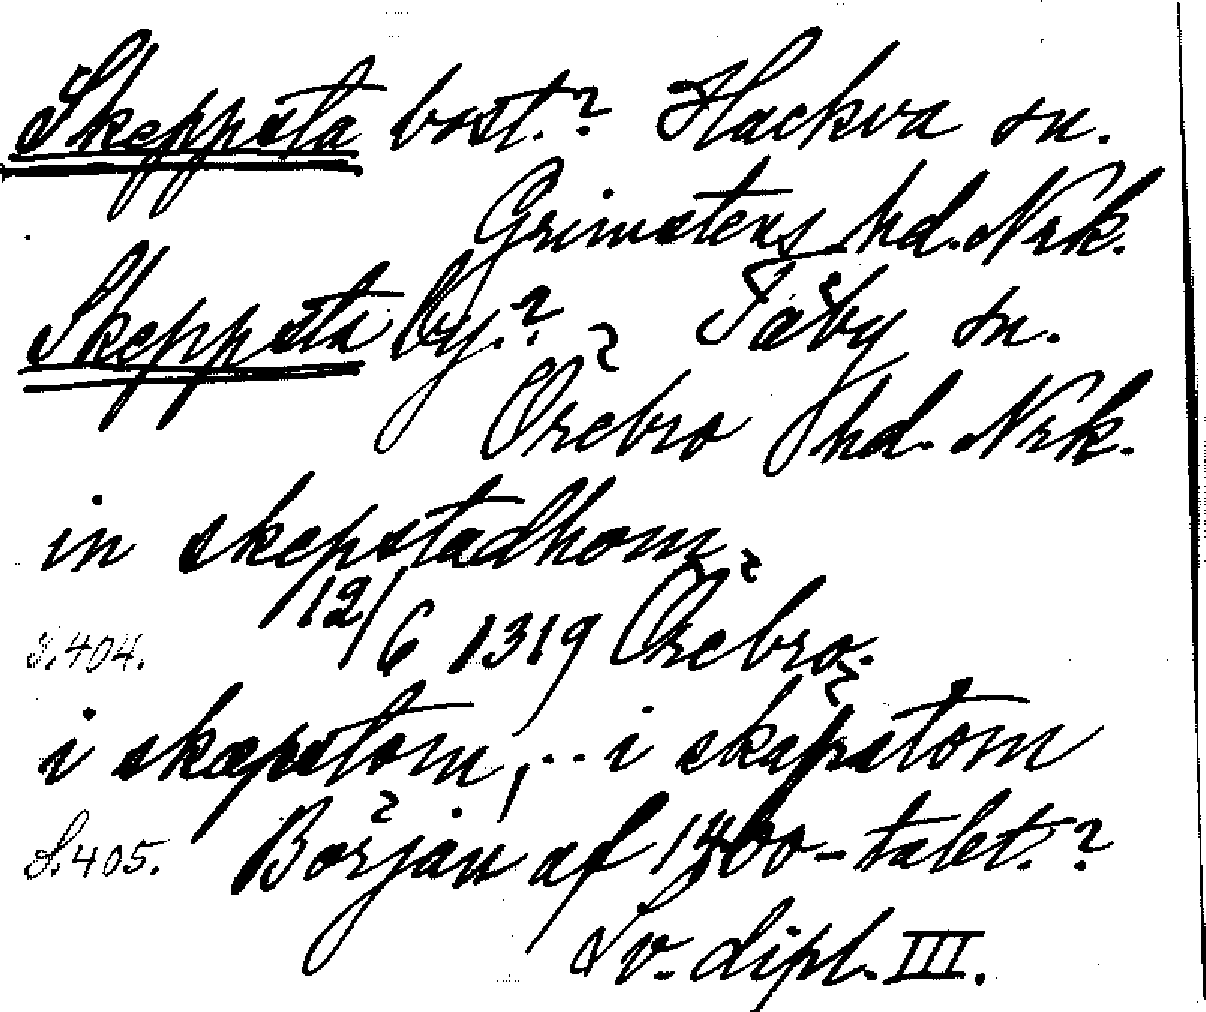 Skeppsta bost.? Hackva sn.
Grimstens hd. Nrk.
Skeppsta by.? Täby sn.
Örebro hd. Nrk.
in skepstadhom
12/6 1319 Örebro.
s. 404.
i skæpstom, .. i skæpstom
S. 405. Början af 1400-talet.?
Sv. dipl. III.